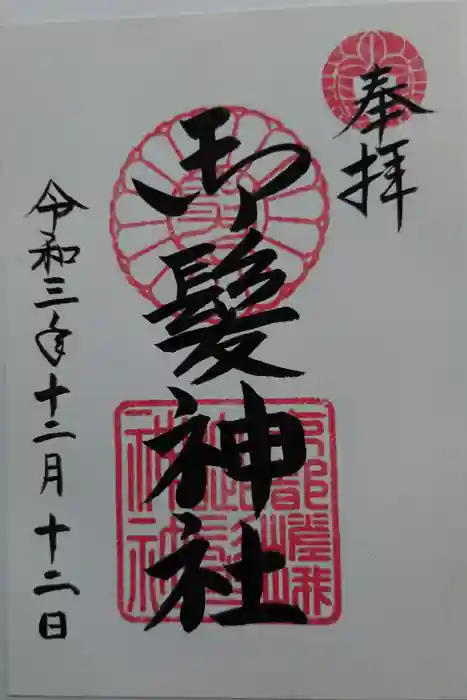 奉拝
御髪神社
令和三年十二月十二日